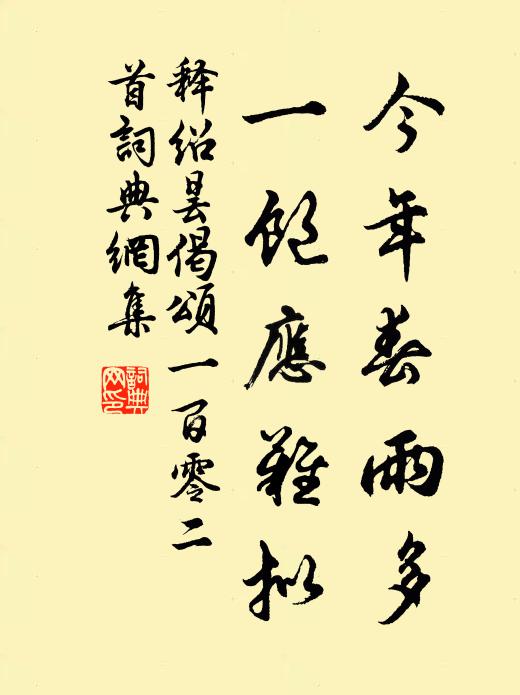 今年春雨多
一饱應難拟
释绍昙偈頌一百零二
首詞典網集
詞典
网印